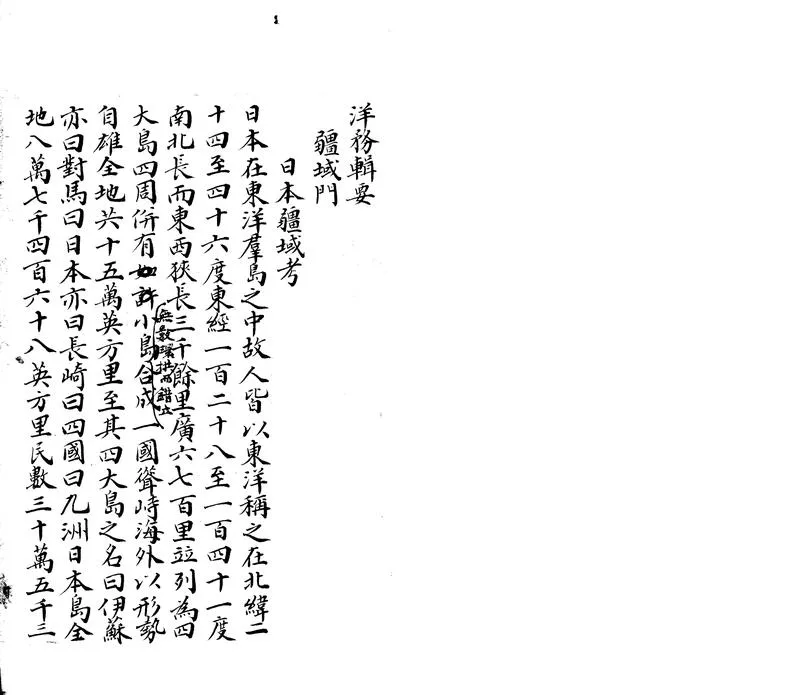 洋務輯要
疆域門
日本疆域考
日本在東洋羣島之中故人皆以東洋稱之在北緯二
十四至四十六度東經一百二十八至一百四十一度
南北長而東西狹長三千餘里廣六七百里竝列為四
大島四周併有如許小島合成一國聳峙海外以形勢
無數環拱而錯立
自雄全地共十五萬英方里至其四大島之名曰伊蘇
亦曰對馬曰日本亦曰長崎曰四國曰九洲日本島全
地八萬七千四百六十八英方里民數三十萬五千三